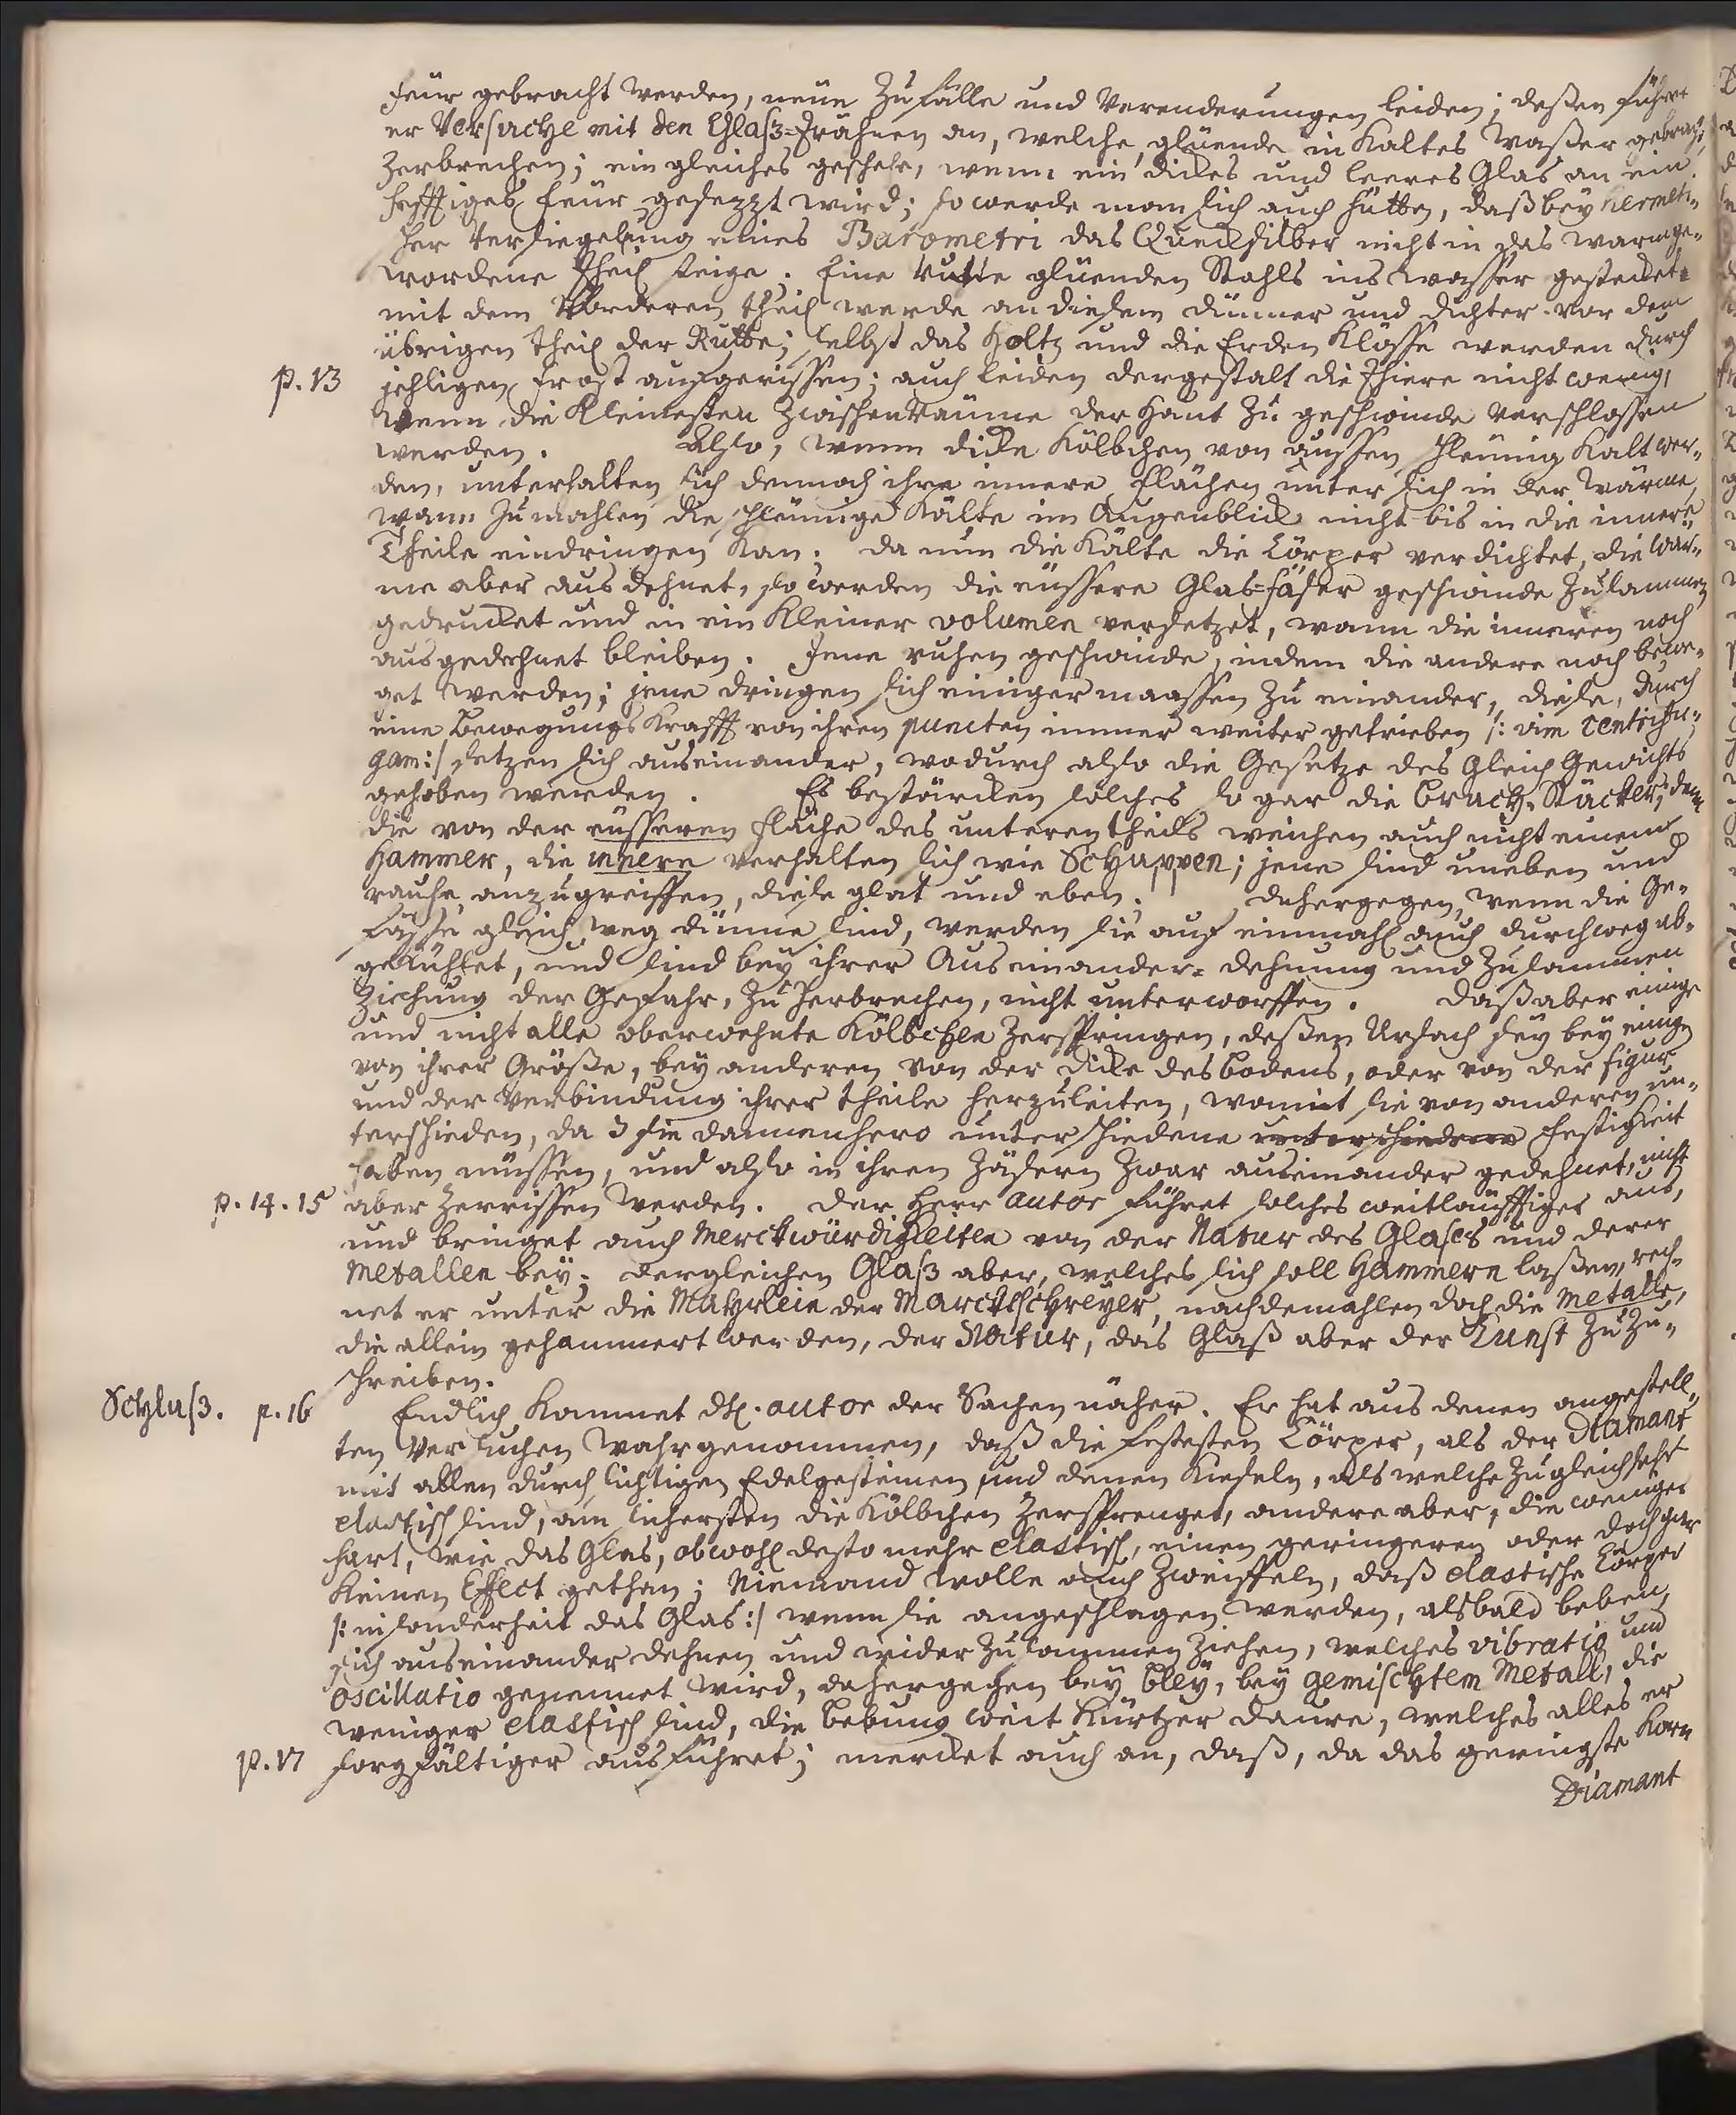 feür gebracht werden, neüe Zufälle und Verenderungen leiden; deßen führet
er Versuche mit den Glaß=Trähnen an, welche, glüende in kaltes Waßer gebracht,
zerbrechen; ein gleiches geschehe, wenn ein dickes und leeres Glas an ein
hefftiges feür gesezzt wird; so werde man sich auch hütten, daß bey hermeti-
scher Versiegelung eines Barometri das Quecksilber nicht in das warm ge-
wordene Theil steige. Eine Rutte glüenden Stahls ins wasser gestecket
mit dem Vorderen theil werde an diesem dünner und dichter vor dem
übrigen theil der Rutte; selbst das Holtz und die Erden Klösse werden durch
p. 13 jehligen frost aufgerissen; auch leiden dergestalt die Thiere nicht wenig,
wenn die kleinesten Zwischen Räume der Haut zu geschwinde verschlossen
werden. Also, wenn dicke Kölbchen von aussen schleünig kalt wer-
den, unterhalten sich dennoch ihre innere flächen unter sich in der Wärme,
wann zumahlen die schleünige Kälte im Augenblick nicht bis in die innere
Theile eindringen kan. Da nun die Kälte die Cörper verdichtet, die War-
me aber ausdehnet, so werden die eüssere Glas=fäser geschwinde zusammen
gedrucket und in ein kleiner volumen versetzet, wann die inneren noch
ausgedehnet bleiben. Jene ruhen geschwinde, indem die andere noch bewe-
get werden; jene dringen sich einiger maassen zu einander, diese, durch
eine Bewegungs Krafft von ihren puncten immer weiter getrieben /: vim centrifu-
gam :/ setzen sich auseinander, wodurch also die Gesetze des Gleich Gewichts
gehoben werden. Es bestärcken solches so gar die Bruch=Stücker, denn
die von der eüsseren fläche des unteren theils weichen auch nicht einem
Hammer, die innere verhalten sich wie Schuppen; jene sind uneben und
rauhe anzugreiffen, diese glat und eben. Dahergegen, wenn die Ge-
fässe gleich weg dünne sind, werden sie auf einmahl auch durchweg ab-
gekühlet, und sind bey ihrer Auseinander=dehnung und Zusammen
Ziehung der Gefahr, zu zerbrechen, nicht unterworffen. Daß aber einige
und nicht alle oberwehnte Kölbchen zerspringen, deßen Ursach sey bey einigen
von ihrer Größe, bey anderen von der dicke des bodens, oder von der figur
und der Verbindung ihrer theile herzuleiten, womit sie von anderen un-
terschieden, da sie dannenhero unterschiedene unterschiedene festigkeit
haben müssen, und also in ihren Zäsern zwar auseinander gedehnet, nicht
p. 14. 15 aber zerrissen werden. Der Herr autor führet solches weitläufftiger aus,
und bringet auch Merckwürdigkeiten von der Natur des Glases und derer
Metallen bey. Dergleichen Glaß aber, welches sich soll Hämmern laßen, rech-
net er unter die Mährlein der Marcktschreyer, nachdemahlen doch die Metalle,
die allein gehammert werden, der Natur, das Glaß aber der Kunst zuzu-
schreiben.
Schluß. p. 16 Endlich kommet dH. autor der Sachen näher. Er hat aus denen angestell-
ten Versuchen wahrgenommen, daß die festesten Cörper, als der Diamant
mit allen durchsichtigen Edelgesteinen und denen Kieseln, als welche zugleich sehr
elastisch sind, am sichersten die Kölbchen zersprenget, andere aber, die weniger
hart, wie das Glas, obwohl desto mehr elastisch, einen geringeren oder doch gar
keinen Effect gethan; Niemand wolle auch zweiffeln, daß elastische Cörper
/: insonderheit das Glas :/ wenn sie angeschlagen werden, alsbald beben,
sich auseinander dehnen und wider zusammen ziehen, welches vibratio und
oscillatio genennet wird, dahergegen bey Bley, bey gemischtem Metall, die
weniger elastisch sind, die Bebung weit kürtzer daure, welches alles er
p. 17 sorgfältiger ausführet; mercket auch an, daß, da das geringste Korn
Diamant